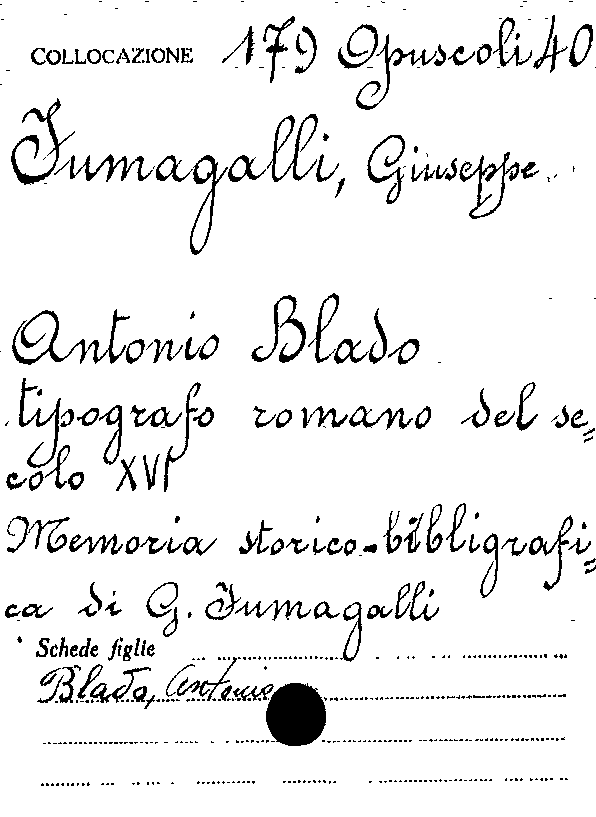 COLLOCAZIONE 179 Opuscoli 40
Fumagalli, Giuseppe.
Antonio Blado
tipografo romano del se=
colo XVI
Memoria storico-bibligrafi=
ca di G. Fumagalli
Schede figlie
Blado, Antonio